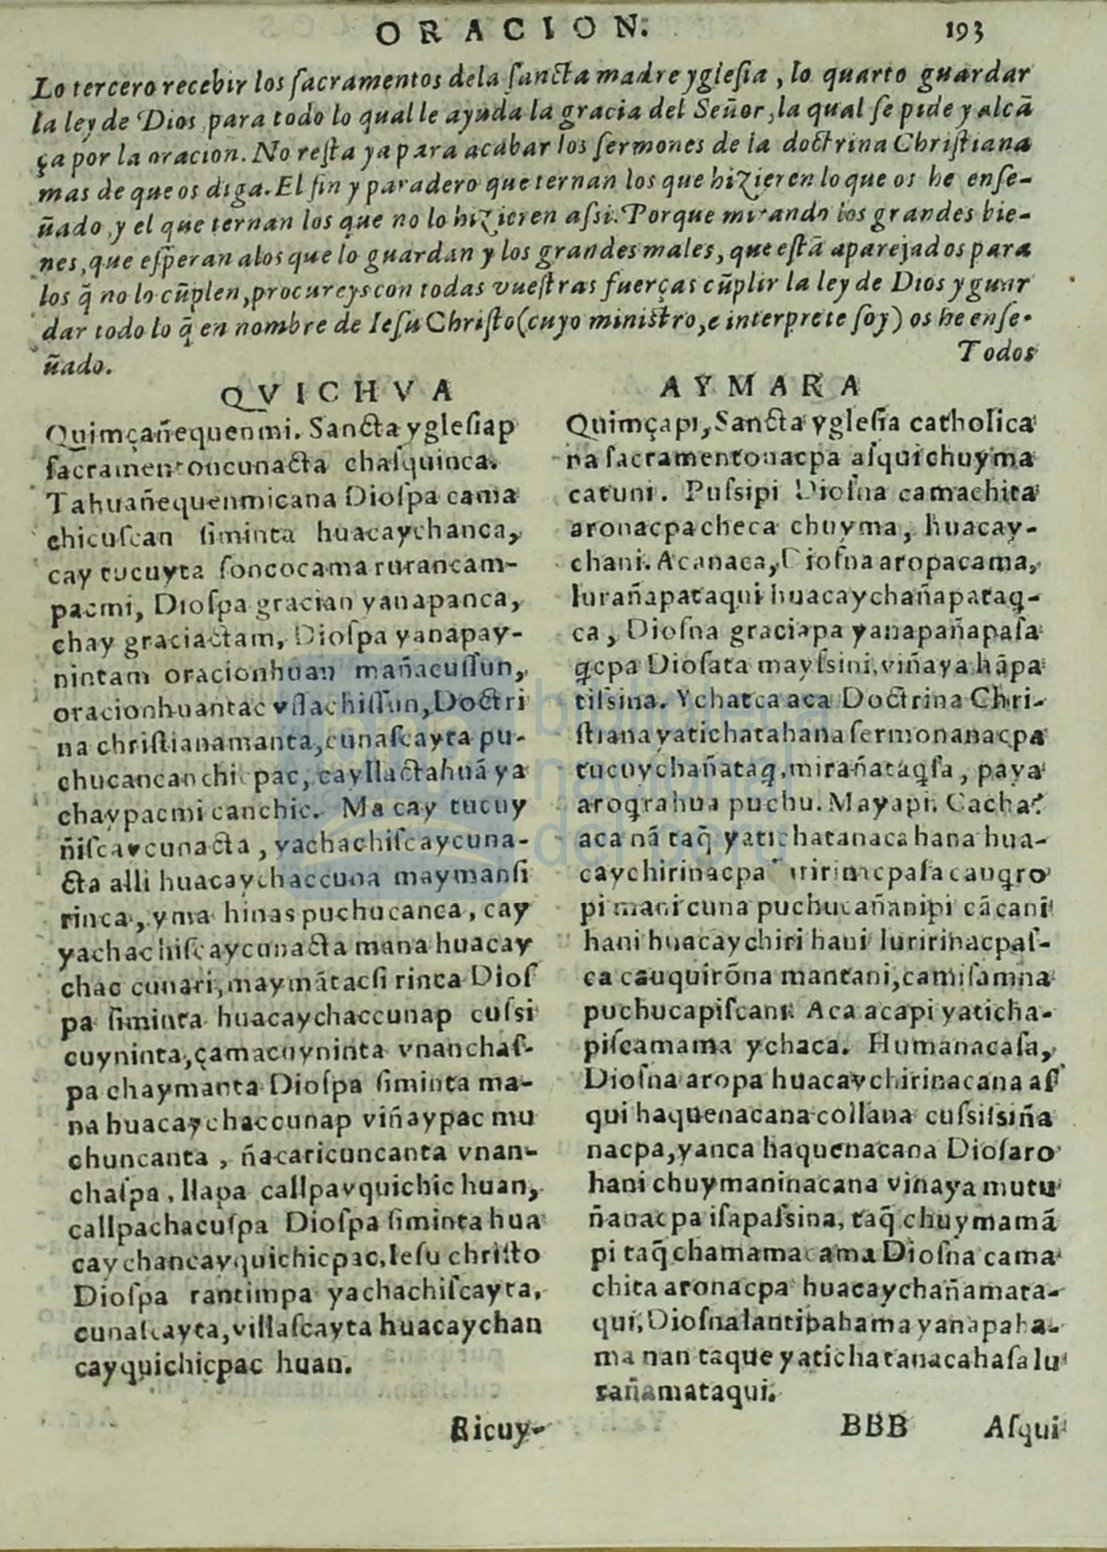 ORACION. 193
Lo tercero recebir los ſacramentos dela ſancta madre ygleſia, lo quarto guardar
la ley de Dios para todo lo qual le ayuda la gracia del Señor, la qual ſe pide y alcã
ça por la oracion. No reſta ya para acabar los ſermones de la doctrina Chriſtiana
mas de que os diga. El fin y paradero que ternan los que hizieren lo que os he enſe-
ñado y el que ternan los que no lo hizieren aſsi. Porque mirando los grandes bie-
nes, que eſperan alos que lo guardan y los grandes males, que eſtã aparejados para
los q̃ no lo cũplen, procureys con todas vueſtras fuerças cũplir la ley de Dios y guar
dar todo lo q̃ en nombre de Ieſu Chriſto (cuyo miniſtro, e interprete ſoy) os he enſe-
ñado. Todos
QVICHVA
Quimçañequenmi. Sancta ygleſiap
ſacramentoncunacta chaſquinca.
Tahuañequenmicana Dioſpa cama
chicuſcan ſiminta huacaychanca,
cay tucuyta ſoncocama rurancam-
pacmi, Dioſpa gracian yanapanca,
chay graciactam, Dioſpa yanapay-
nintam oracionhuan mañacuſſun,
oracionhuantac vſlachiſſun, Doctri
na chriſtianamanta, cunaſcayta pu-
chucancanchicpac, cayllactahuã ya
chaypacmi canchic. Ma cay tucuy
ñiſcaycunacta, yachachiſcaycuna-
cta alli huacaychaccuna maymanſi
rinca, yma hinas puchucanca, cay
yachachiſcaycunacta mana huacay
chac cunari, maymãtacſi rinca Dioſ
pa ſiminta huacaychaccunap cuſsi
cuyninta, çamacuyninta vnanchaſ-
pa chaymanta Dioſpa ſiminta ma-
na huacaychaccunap viñaypac mu
chuncanta, ñacaricuncanta vnan-
chaſpa, llapa callpayquichic huan,
callpachacuſpa Dioſpa ſiminta hua
caychancayquichicpac, Ieſu chriſto
Dioſpa rantimpa yachachiſcayta,
cunaſcayta, villaſcayta huacaychan
cayquichicpac huan.
Ricuy-
AYMARA
Quimçapi, Sancta ygleſia catholica
na ſacramentonacpa aſquichuyma
catuni. Puſsipi Dioſna camachita
aronacpacheca chuyma, huacay-
chani. Acanaca, Dioſna aropacama,
lurañapataqui huacaychañapataq-
ca, Dioſna graciapa yanapañapaſa
qcpa Dioſata mayſsini, viñaya hãpa
tiſsina. Ychatca aca Doctrina Chri-
ſtiana yatichatahana ſermonanacpa
tucuychañataq, mirañataqſa, paya
aroqrahua puchu. Mayapi. Cacha?
aca nã taq̃ yatichatanaca hana hua-
caychirinacpa iuririnacpaſa cauqro
pi manicuna puchucañanipi cãcani
hani huacaychiri hani luririnacpaſ-
ca cauquirõna mantani, camiſamna
puchucapiſcani. Aca acapi yaticha-
piſcamama ychaca. Humanacaſa,
Dioſna aropa huacaychirinacana aſ
qui haquenacana collana cuſsiſsiña
nacpa, yanca haquenacana Dioſaro
hani chuymaninacana viñaya mutu
ñanacpa iſapaſsina, taq̃ chuymamã
pi taq̃ chamamacama Dioſna cama
chita aronacpa huacaychañamata-
qui, Dioſna lantipahama yanapaha-
ma nan taque yatichatanacahaſa lu
rañamataqui.
BBB Aſqui